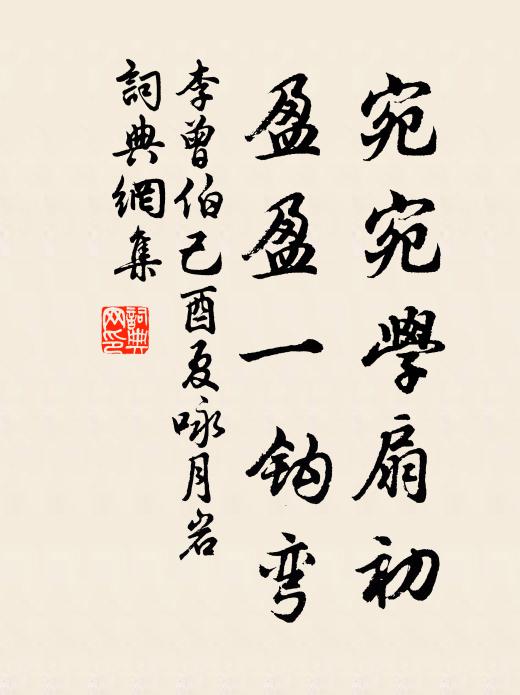 宛宛學扇初
盈盈一鈎彎
李曾伯己酉夏咏月岩
詞典網集
詞典
网印